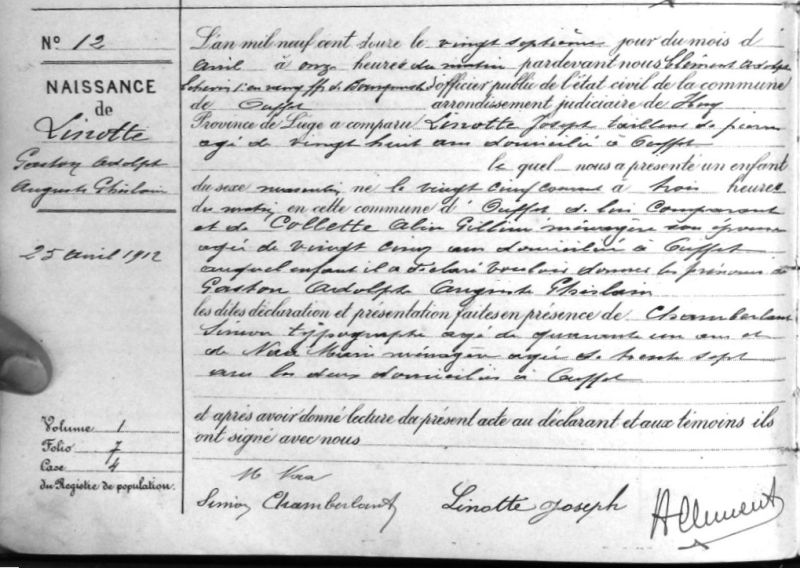 N° 12
NAISSANCE
de
Linotte
Gaston Adolphe
Auguste Ghislain
25 avril 1912
Volume 1
Folio 7
Case 4
du Registre de population.
L'an mil neuf cent douze le vingt septième jour du mois d'
avril à onze heures du matin pardevant nous Clément Adolphe
échevin ff de Bourgmestre officier public de l'état civil de la commune
de Ouffet arrondissement judiciaire de Huy
Province de Liége a comparu Linotte Joseph tailleur de pierres
agé de vingt huit ans domicilié à Ouffet
le quel nous a présenté un enfant
du sexe masculin né le vingt cinq courant à trois heures
du matin en cette commune d'Ouffet de lui comparant
et de Collette Aline ménagère son épouse
agée de vingt cinq ans domiciliée à Ouffet
auquel enfant il a déclaré vouloir donner les prénoms de
Gaston Adolphe Auguste Ghislain
les dites déclaration et présentation faites en présence de Chamberlant
Simon typographe agé de quarante un ans et
de Marie ménagère agée de trente sept
ans les deux domiciliés à Ouffet
et après avoir donné lecture du présent acte au déclarant et aux témoins ils
ont signé avec nous
M
Simon Chamberlant Linotte Joseph AClément